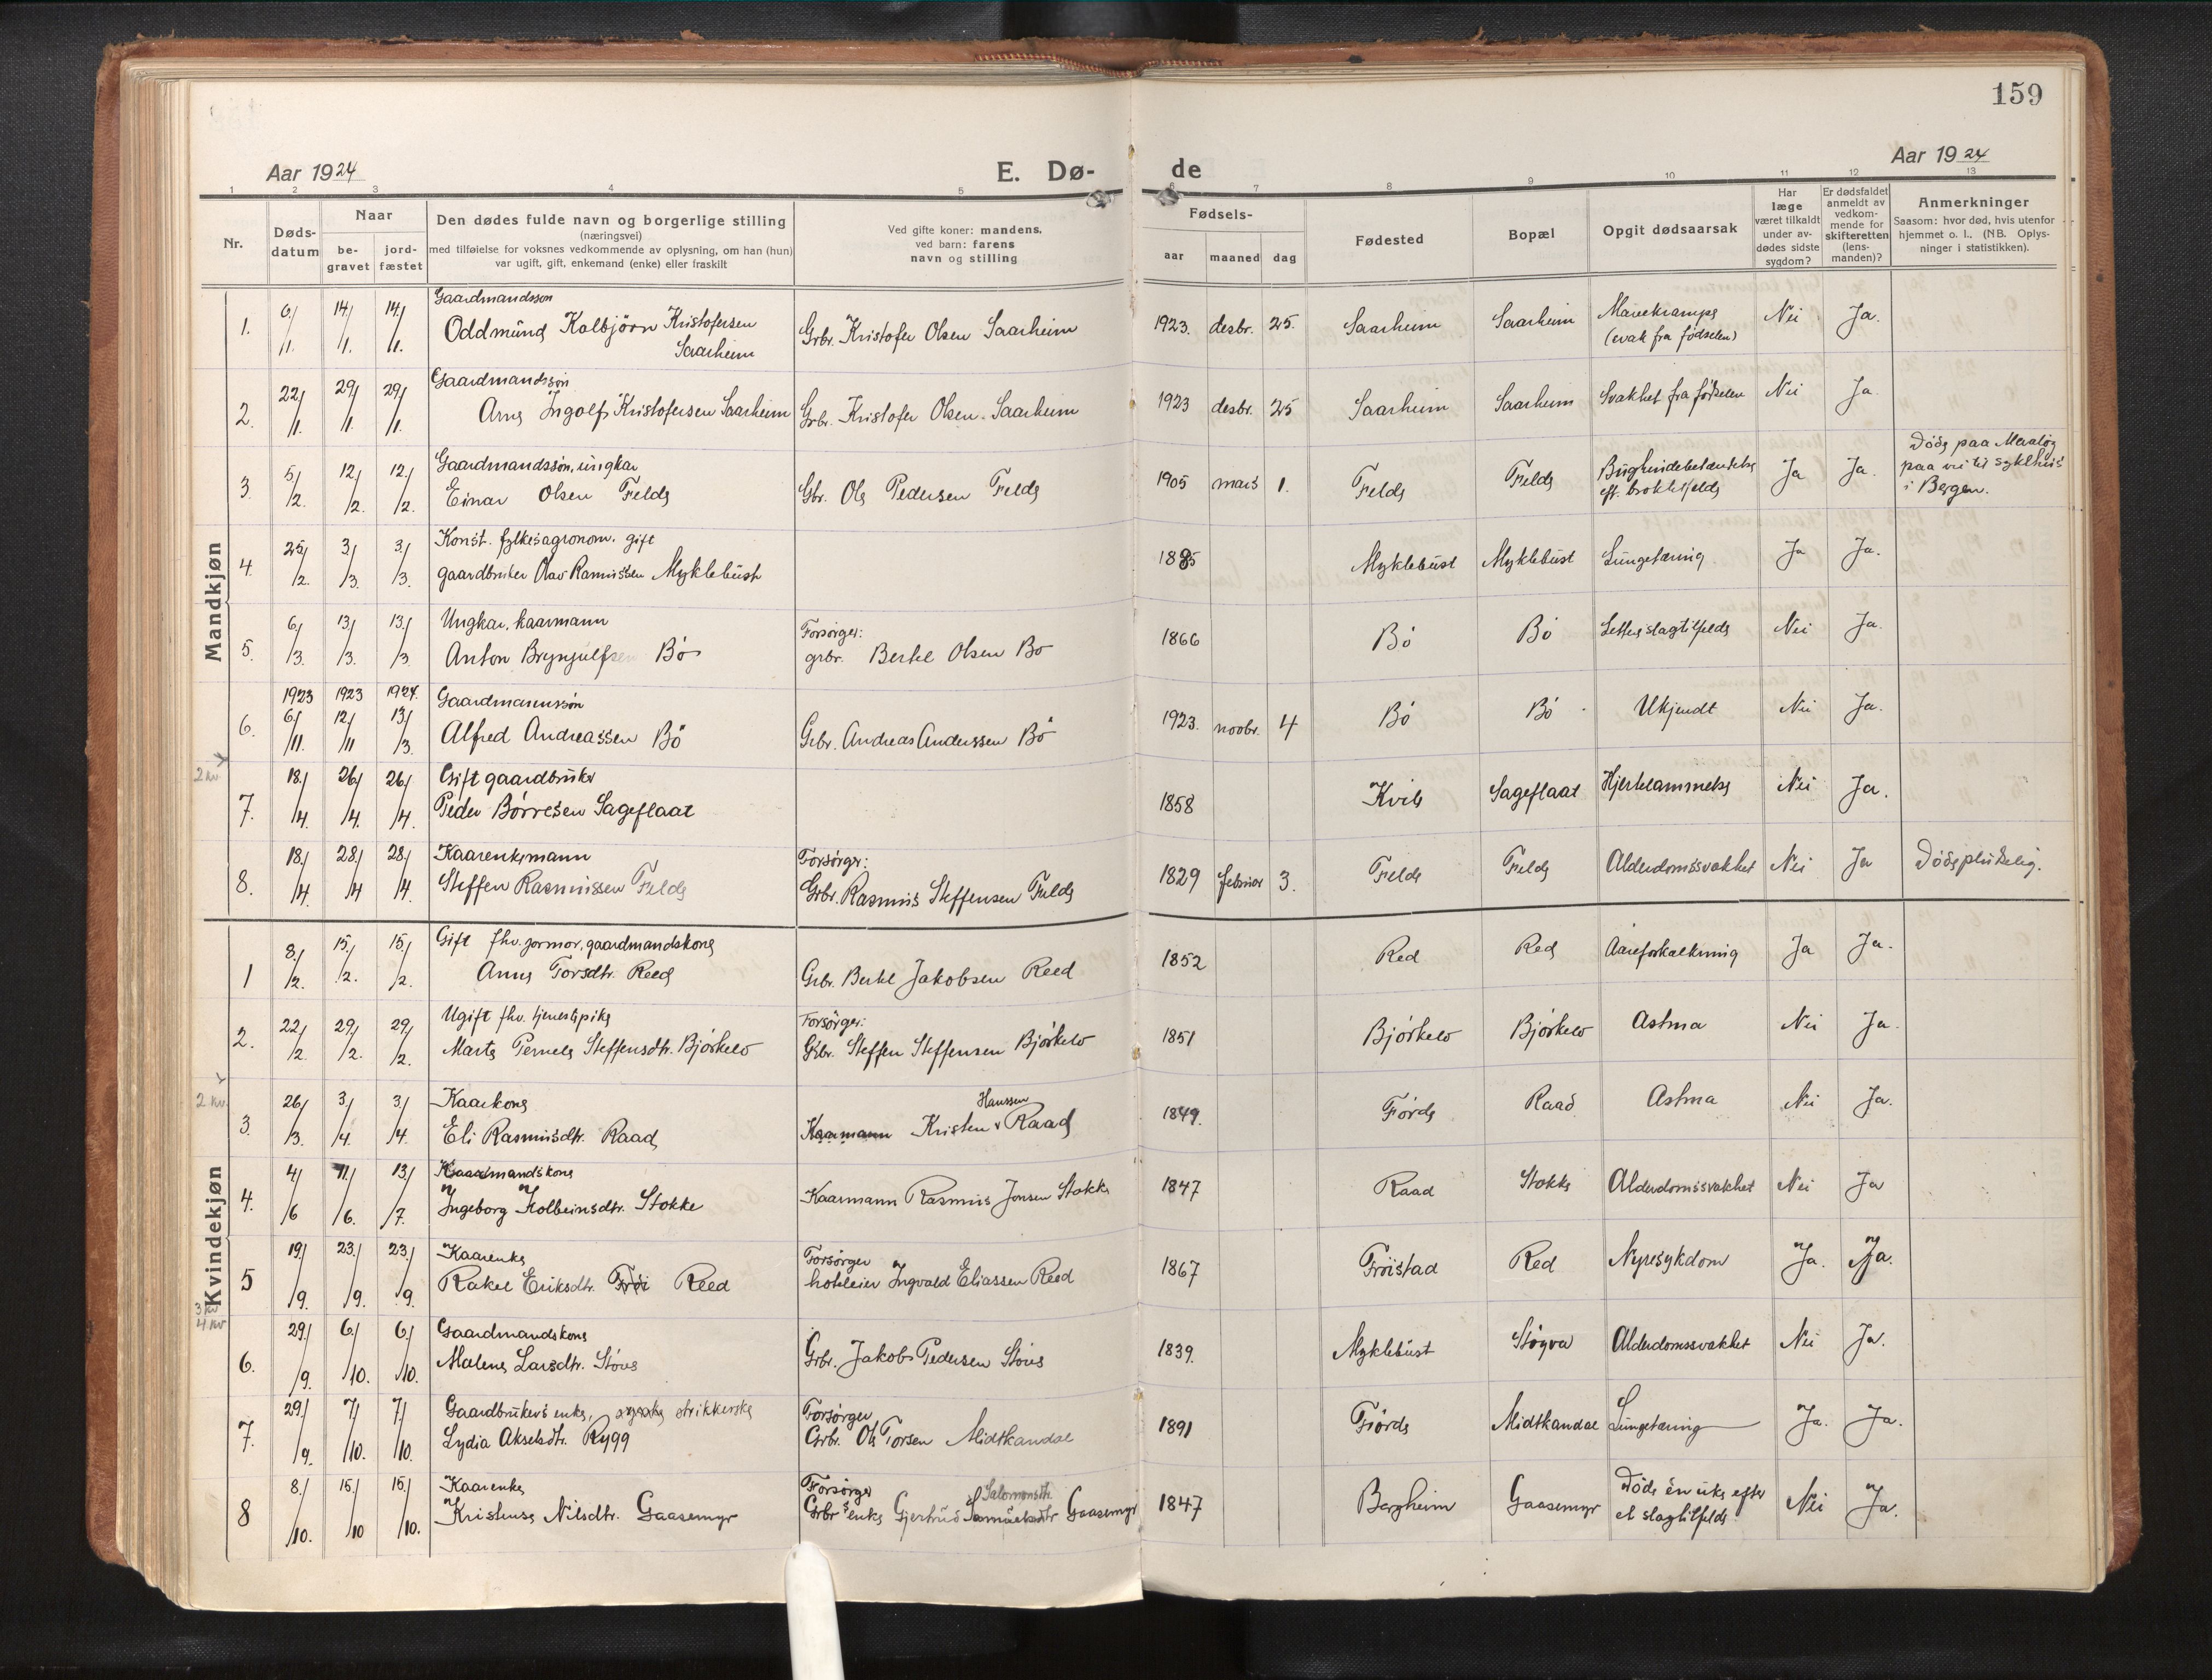 159
Aar 1924
E. Dø-
de
Aar 1924
1 2 3 4 5 6 7 8 9 10 11 12 13
Nr.
Døds-
datum
Naar
be-
gravet
jord-
fæstet
Den dødes fulde navn og borgerlige stilling
(næringsvei)
med tilføielse for voksnes vedkommende av oplysning, om han (hun)
var ugift, gift, enkemand (enke) eller fraskilt
Ved gifte koner: mandens,
ved barn: farens
navn og stilling
Fødsels-
aar maaned dag
Fødested
Bopæl
Opgit dødsaarsak
Har
læge
været tilkaldt
under av-
dødes sidste
sygdom?
Er dødsfaldet
anmeldt av
vedkom-
mende for
skifteretten
(lens-
manden)?
Anmerkninger
Saasom: hvor død, hvis utenfor
hjemmet o. l., (NB. Oplys-
ninger i statistikken).
Mandkjøn
1. 6/1. 14/1. 14/1.
Gaardmandssøn
Oddmund Kolbjörn Kristofersen
Saarheim
Grbr. Kristofer Olsen Saarheim
1923. desbr. 25. Saarheim Saarheim
Mavekrampe
(svak fra födselen)
Nei Ja.
2. 22/1. 29/1. 29/1.
Gaardmandssøn
Arne Ingolf Kristofersen Saarheim
Grbr. Kristofer Olsen Saarheim
1923 desbr. 25 Saarheim Saarheim Svakhet fra födselen Nei Ja
3. 5/2. 12/2. 12/2.
Gaardmandssøn, ungkar
Einar Olsen Felde
Gbr. Ole Pedersen Felde
1905 mars 1. Felde Felde
Bughindebetændelse
eft. brokktilfelde
Ja Ja.
Døde paa Maaløy
paa vei til sykehus
i Bergen.
4. 25/2. 3/3. 3/3.
Konst. fylkesagronom. gift
gaardbruker Olav Rasmussen Myklebust
1885 Myklebust Myklebust Lungetæring Ja Ja.
5. 6/3. 13/3. 13/3.
Ungkar, kaarmann
Anton Brynjulfsen Bö
Forsörger:
grbr. Bertel Olsen Bö
1866 Bö Bö Lettere slagtilfelde Nei Ja.
1923 1923 1924.
6. 6/11. 12/11 13/3.
Gaardmannssøn
Alfred Andreassen Bö
Grbr. Andreas Anderssen Bö
1923. novbr. 4 Bö Bö Ukjendt Nei Ja.
2 kv.
7. 18/4. 26/4. 26/4.
Gift gaardbruker
Peder Börresen Sageflaat
1858 Kvile Sageflaat Hjertelammelse Nei Ja.
8. 18/4. 28/4 28/4.
Kaarenkemann
Steffen Rasmussen Felde
Forsörger:
Grbr. Rasmus Steffensen Felde
1829 februar 3. Felde Felde Alderdomssvakhet Nei Ja Døde plutselig.
Kvindekjøn
1 8/2. 15/2. 15/2.
Gift fhv. jormor, gaardmandskone
Anne Torsdtr. Reed
Grbr. Bertel Jakobsen Reed
1852 Red Red Aareforkalkning Ja Ja.
2. 22/2. 29/2. 29/2.
Ugift fhv. tjenestepike
Marte Pernele Steffensdtr. Björkelo
Forsörger:
Grbr. Steffen Steffensen Björkelo
1851 Björkelo Björkelo Astma Nei Ja.
2 kv.
3. 26/3. 3/4. 3/4.
Kaarkone
Eli Rasmusdtr. Raad
Hanssen
Kaarmann Kristen Raad
1849. Förde Raad Astma Nei Ja.
4. 4/6 11/6. 13/7.
Kaarmandskone
Ingeborg Kolbeinsdtr. Stokke
Kaarmann Rasmus Jonsen Stokke
1847 Raad Stokke Alderdomssvakhet Nei Ja
5 19/9. 23/9. 23/9.
Kaarenke
Rakel Eriksdtr. Reed
Forsörger
hoteleier Ingvald Eliassen Reed
1867 Fröistad Red Nyresykdom Ja. Ja.
3 kv
4. kv
6. 29/9. 6/10. 6/10.
Gaardmandskone
Malene Larsdtr. Störe
Grbr. Jakob Pedersen Störe
1839. Myklebust Alderdomssvakhet Nei Ja.
7. 29/9. 7/10. 7/10.
Gaardbrukers enke, strikkerske
Lydia Akselsdtr. Rygg
Forsörger
Grbr. Ole Torsen Midtkandal
1891 Förde Midtkandal Lungetæring Ja. Ja.
8 8/10. 15/10 15/10.
Kaarenke
Kristense Nilsdtr. Gaasemyr
Forsörger
Salomonsdtr.
Grbr's enke Gjertrud Samuelsdtr Gaasemyr
1847 Bergheim Gaasemyr
Døde én uke efter
et slagtilfelde
Nei Ja.